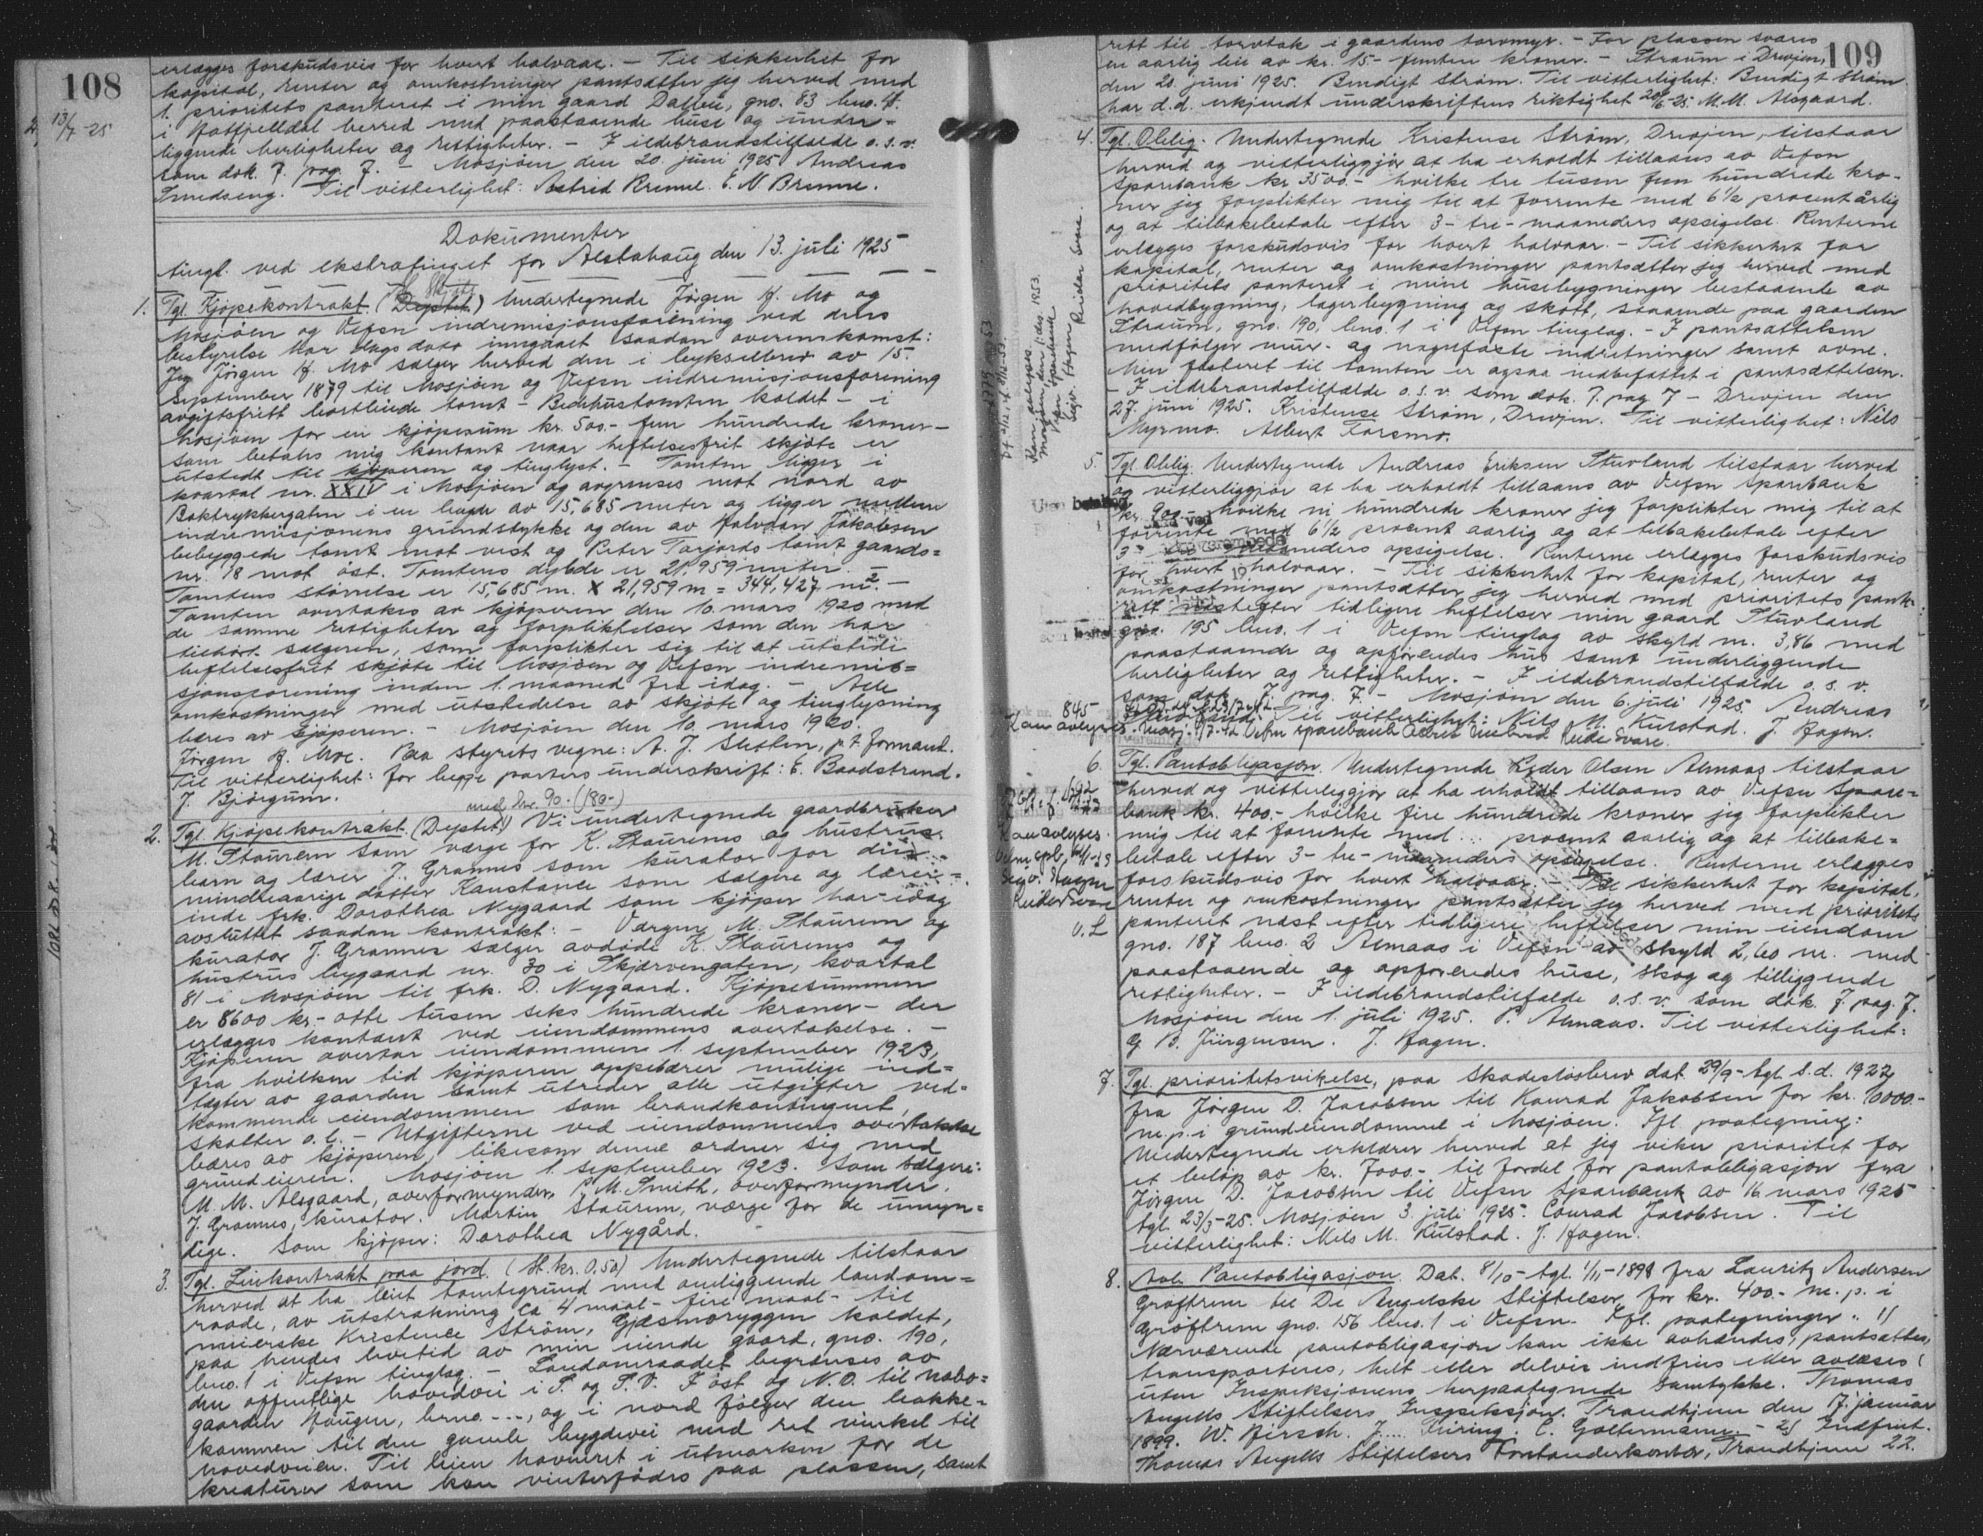 108
13/7-25
erlægges forskudsvis for hvert halvaar. - Til sikkerhet for
kapital, renter og omkostninger pantsætter jeg herved med
1. prioritets panteret i min gaard gno. 83 bno.
i Hatfjelldal herred med paastaaende huse og under=
liggende herligheter og rettigheter. - I ildebrandstilfælde o.s.v.
som dok. 7. pag. 7. - Mosjøen den 20. juni 1925 Andreas
Smedseng. Til vitterlighet: Astrid Brenne. E. N Brenne.
Dokumenter
tingl. ved ekstratinget for Alstahaug den 13. juli 1925
1. Tgl. Kjøpekontrakt Undertegnede Jørgen H. Mo og
Mosjøen og Vefsn indremisjonsforening ved dens
bestyrelse har dags dato inngaaet saadan overenskomst:
Jeg Jørgen H. Mo sælger herved den i bykselbrev av 15.
September 1879 til Mosjøen og Vefsn indremisjonsforening
avgiftsfritt bortleiede tomt - Bedehustomten kaldet - i
Mosjøen for en kjøpesum kr. 500.- fem hundrede kroner-
som betales mig kontant naar heftelsesfrit skjøte er
utstedt til kjøperen og tinglyst. - Tomten ligger i
kvartal nr. XXIV i Mosjøen og avgrenses mot nord av
Boktrykkergaten i en lengde av 15,685 meter og ligger mellem
indremisjonens grundstykke og den av Halvdan Jakobsen
bebyggede tomt mot vest og Peter Torjords tomt gaards=
nr. 18 mot øst. Tomtens dybde er 21,959 meter. -
Tomtens størrelse er 15,685 m. x 21,959 m = 344,427 m². -
Tomten overtakes av kjøperen den 10. mars 1920 med
de samme rettigheter og forpliktelser som den har
tilhørt sælgeren, som forplikter sig til at utstede
heftelsesfrit skjøte til Mosjøen og Vefsn indremis=
sjonsforening inden 1. maaned fra idag. - Alle
omkostninger med utstedelse av skjøte og tinglysning
bæres av kjøperen. - Mosjøen den 10. mars 1920.
Jørgen H. Moe. Paa styrets vegne: A. J. p.t. formand.
Til vitterlighet: for begge parters underskrift: E. Baadstrand.
J. Bjørgum.
med kr. 90.- (180-)
2. Tgl. Kjøpekontrakt. (Dept.) Vi undertegnede gaardbruker
M. Staurem som værge for K. Staurems og hustrus
barn og lærer J. Grannes som kurator for den
mindreaarige datter Konstance som sælgere og lærer=
inde frk. Dorothea Nygaard som kjøper har idag
avsluttet saadan kontrakt: - Værgen M. Staurem og
kurator J. Grannes sælger avdøde K. Staurems og
hustrus bygaard nr. 30 i Skjærvengaten, kvartal
81 i Mosjøen til frk. D. Nygaard. Kjøpesummen
er 8600 kr- otte tusen seks hundrede kroner- der
erlægges kontant ved eiendommens overtakelse. -
Kjøperen overtar eiendommen 1. september 1923,
fra hvilken tid kjøperen oppebærer mulige ind=
tægter av gaarden samt utreder alle utgifter ved=
kommende eiendommen som brandkontingent,
skatter o.l. - Utgifterne ved eiendommens overtakelse
bæres av kjøperen, likesom denne ordner sig med
grundeieren. Mosjøen 1. september 1923. Som sælgere:
M. M. Alsgaard, overformynder, P M. Smith, overformynder.
J. Grannes, kurator. Martin Staurem, værge for de umyn=
dige. Som kjøper: Dorothea Nygård.
3. Tgl. Leiekontrakt paa jord. (St. kr. 0,50) Undertegnede tilstaar
herved at ha leiet tomtegrund med omliggende landom=
raade, av utstrækning ca 4 maal- fire maal- til
meierske Kristense Strøm, Gjæsmoryggen kaldet,
paa hendes levetid av min eiende gaard, gno. 190,
bno. 1 i Vefsn tinglag. - Landomraadet begrænses av
den offentlige hovedvei i S. og S.V. I øst og N.O. til nabo=
gaarden Haugen, brno ---, og i nord følger den bakke=
kammen til den gamle bygdevei med ret vinkel til
hovedveien. Til leien havneret i utmarken for de
kreaturer som kan vinterfødes paa plassen, samt
109
rett til torvtak i gaardens torvmyr. - For plassen svares
en aarlig leie av kr. 15.- femten kroner. - Straum i Drevjen,
den 20. juni 1925. Bendigt Strøm. Til vitterlighet: Bendigt Strøm
har d.d. erkjendt underskriftens riktighet 20/6-25 M.M. Alsgaard.
4. Tgl. Oblig. Undertegnede Kristense Strøm, Drevjen, tilstaar
herved og vitterliggjør at ha erholdt tillaans av Vefsn
Sparebank kr 3500.- hvilke tre tusen fem hundrede kro-
ner jeg forplikter mig til at forrente med 6½ procent årlig
og at tilbakebetale efter 3- tre- maaneders opsigelse. Renterne
erlægges forskudsvis for hvert halvaar. - Til sikkerhet for
kapital, renter og omkostninger pantsætter jeg herved med
prioritets panteret i mine husebygninger bestaaende av
hovedbygning, lagerbygning og skott, staaende paa gaarden
Straum, gno. 190, bno. 1 i Vefsn tinglag. - I pantsættelsen
medfølger mur- og naglefaste indretninger samt ovne.
Men festeret til tomten er ogsaa indbefattet i pantsættelsen.
- I ildebrandstilfælde o.s.v. som dok. 7. pag 7 - Drevjen den
27. juni 1925. Kristense Strøm, Drevjen. Til vitterlighet: Nils
Myrmo. Albert Forsmo.
Kan avlyses.
Mosjøen, den 1. des. 1953.
Vefsn sparebank
Sigv. Hagen Reidar Svare.
5. Tgl. Oblig. Undertegnede Andreas Eriksen Stuvland tilstaar herved
og vitterliggjør at ha erholdt tillaans av Vefsn Sparebank
kr. 900.- hvilke ni hundrede kroner jeg forplikter mig til at
forrente med 6½ procent aarlig og at tilbakebetale efter
3- maaneders opsigelse. Renterne erlægges forskudsvis
for hvert halvaar. - Til sikkerhet for kapital, renter og
omkostninger pantsætter jeg herved med prioritets pante-
rett næst efter tidligere heftelser min gaard Stuvland
gno. 195 bno. 1 i Vefsn tinglag av skyld m. 3,86 med
paastaaende og opførendes hus samt underliggende
herligheter og rettigheter. - I ildebrandstilfælde o.s.v.
som dok. 7. pag. 7. - Mosjøen den 6. juli 1925 Andreas
Til vitterlighet: Nils M. Kulstad. J. Hagen.
845
Kan avlyses. Mosj. 9/7-42 Vefsn sparebank Reidar Svare.
6. Tgl. Pantobligasjon. Undertegnede Peder Olsen Almaas tilstaar
herved og vitterliggjør at ha erholdt tillaans av Vefsn Spare=
bank kr. 400.- hvilke fire hundrede kroner jeg forplikter
mig til at forrente med ... procent aarlig og at tilbake=
betale efter 3- tre- maaneders opsigelse. Renterne erlægges
forskudsvis for hvert halvaar. - Til sikkerhet for kapital,
renter og omkostninger pantsætter jeg herved med prioritets
panteret næst efter tidligere heftelser min eiendom
gno. 187 bno. 2 Almaas i Vefsn av skyld 2,60 m. med
paastaaende og opførendes huse, skog og tilliggende
rettigheter. - I ildebrandstilfælde o.s.v. som dok 7. pag. 7.
Mosjøen den 1. juli 1925. P. Almaas. Til vitterlighet:
G. B. Jürgensen. J. Hagen.
Kan avlyses.
Vefsn spb.
Sigv. Hagen
Reidar Svare
7. Tgl. prioritetsvikelse, paa Skadesløsbrev dat. 29/9- tgl. s.d. 1922
fra Jørgen D. Jacobsen til Konrad Jakobsen for kr. 10000.-
m.p. i grundeiendommel i Mosjøen. Ifl. paategning:
Undertegnede erklærer herved at jeg viker prioritet for
et beløp av kr. 7000.- til fordel for pantobligasjon fra
Jørgen D. Jacobsen til Vefsn Sparebank av 16. mars 1925
tgl. 23/3-25. Mosjøen 3. juli 1925. Conrad Jacobsen. Til
vitterlighet: Nils M. Kulstad. J. Hagen.
8. Avl. Pantobligasjon. Dat. 8/10- tgl. 1/11-1898 fra Lauritz Andersen
Grøftrem til De Angelske Stiftelser for kr. 400.- m.p. i
Grøftrem gno. 156 bno. 1 i Vefsn. Ifl. paategninger: 1)
Nærværende pantobligasjon kan ikke avhændes, pantsættes,
transporteres, helt eller delvis indfries eller avlæses
uten Inspeksjonens herpaategnede samtykke. Thomas
Angells Stiftelsers Inspeksjon. Trondhjem den 17. januar
1899. W. Hirsch. J.... C. - 2) Indfriet.
Thomas Angells Stiftelsers Forstanderkontor, Trondhjem 22.